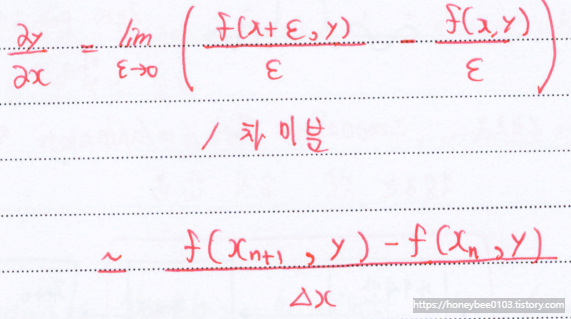 ∂y/∂x = lim ε→0 ( f(x+ε, y)/ε - f(x,y)/ε )
1차 미분
~ f(xn+1, y) - f(xn, y) / Δx
https://honeybee0103.tistory.com